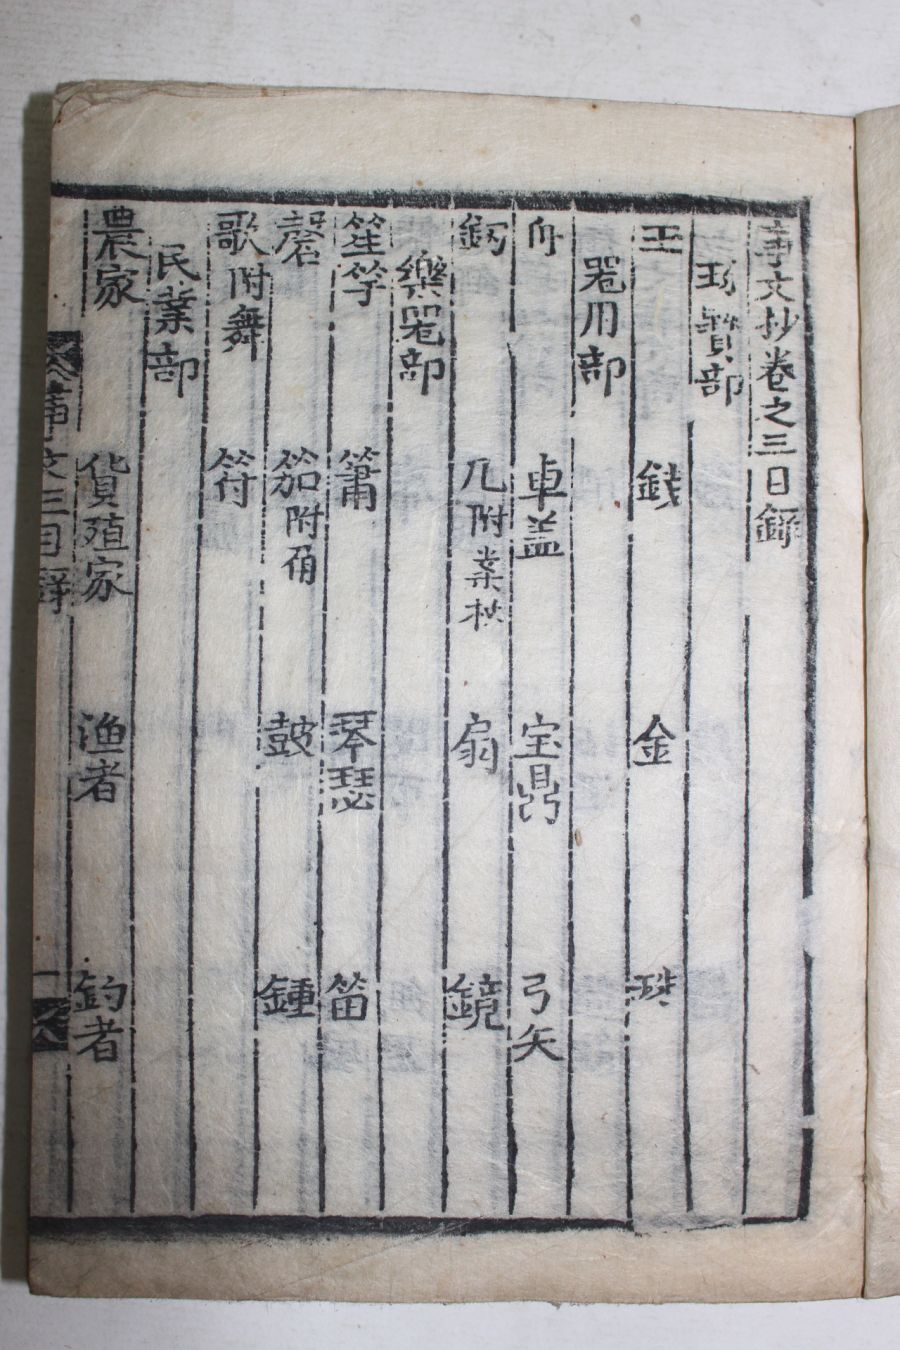 事文抄卷之三目録
珎寳部
玉 錢 金 珠
噐用部
舟 車盖 宝鼎 弓矢
釼 几附案杖 扇 鏡
樂噐部
笙竽 簫 琴瑟 笛
磬 笳附角 鼓 鍾
歌附舞 符
民業部
農家 貨殖家 渔者 釣者
事文三目録 一